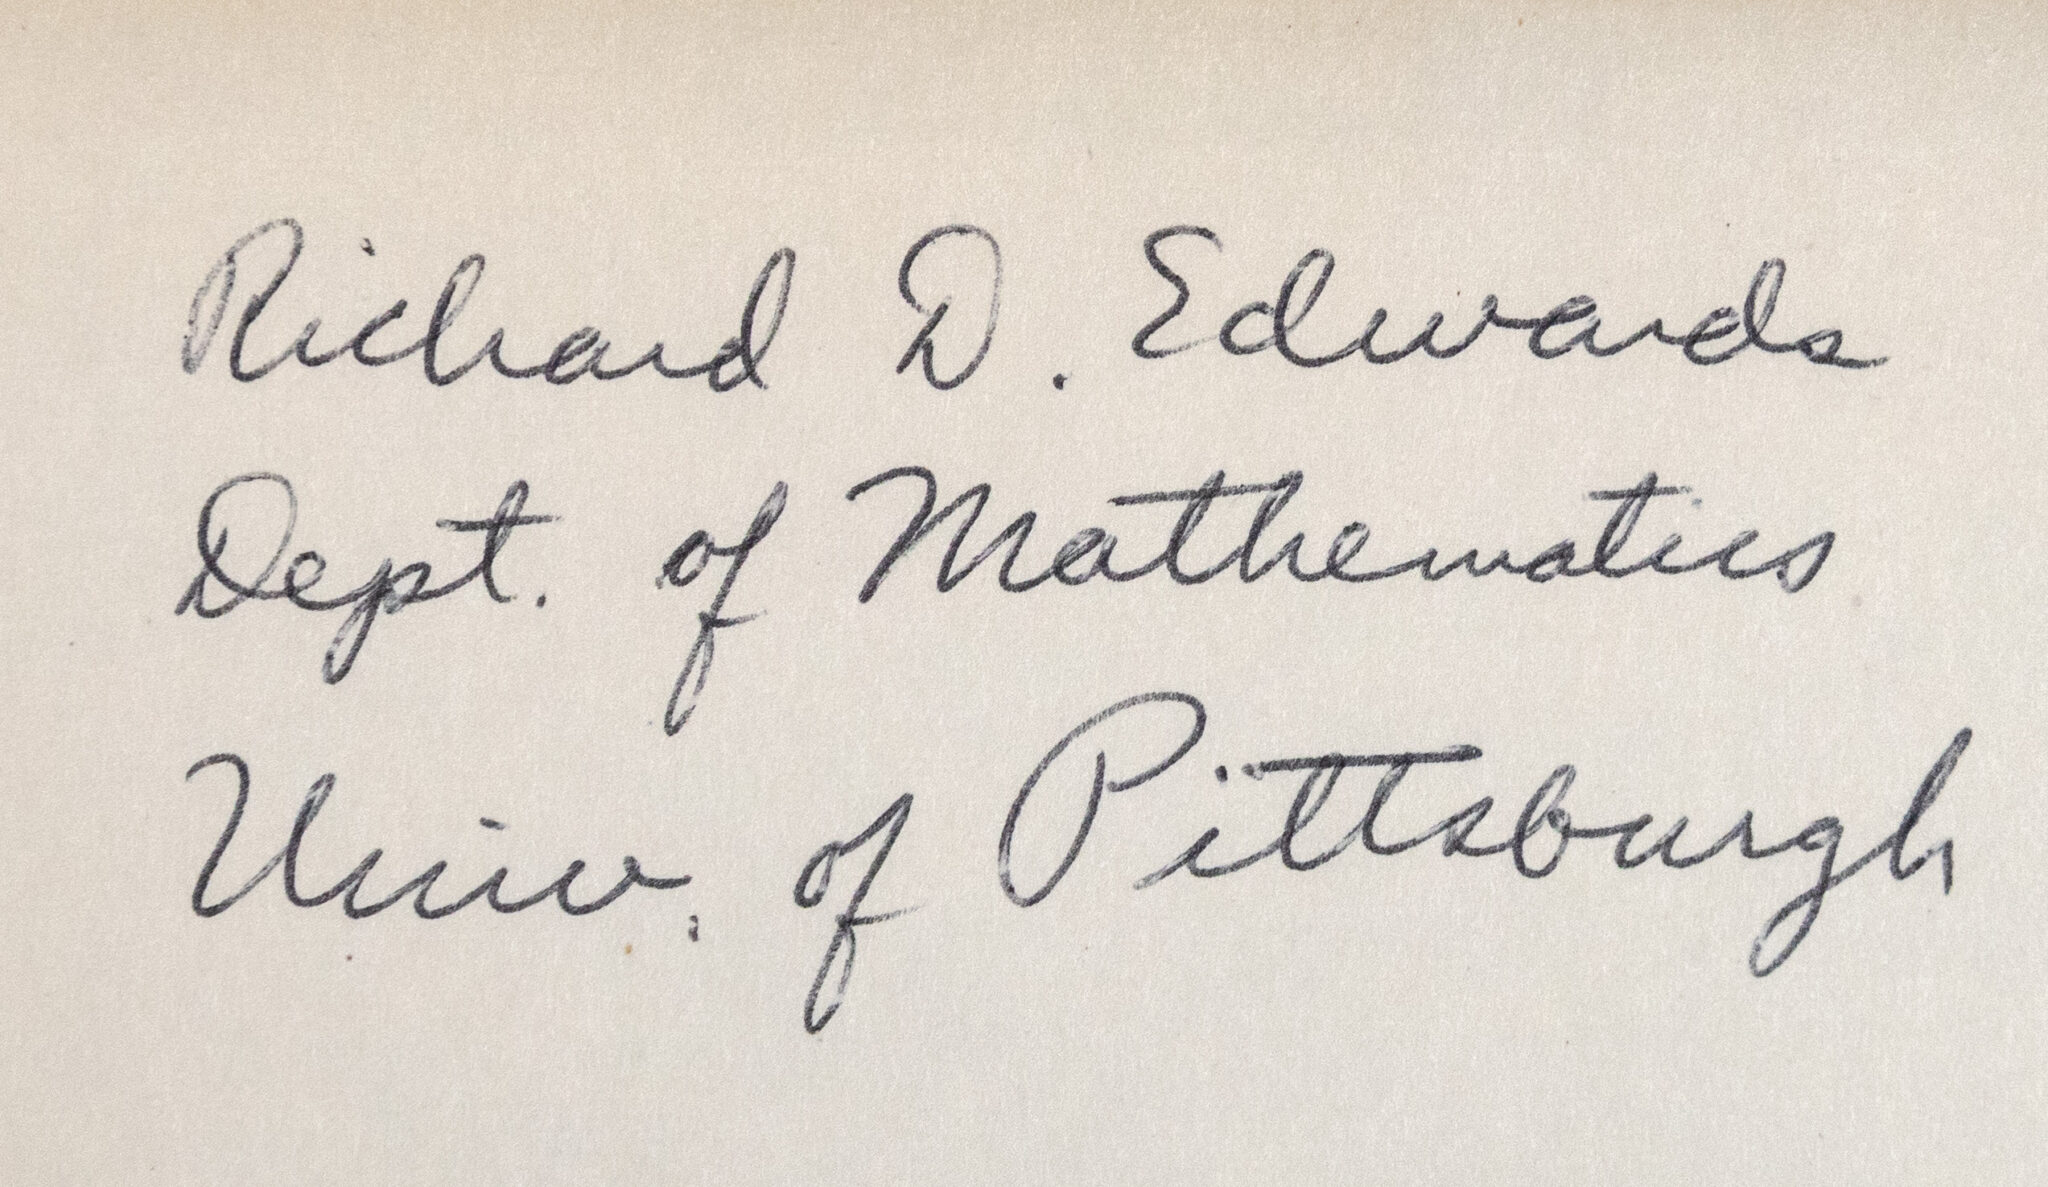 Richard D. Edwards
Dept. of Mathematics
Univ. of Pittsburgh